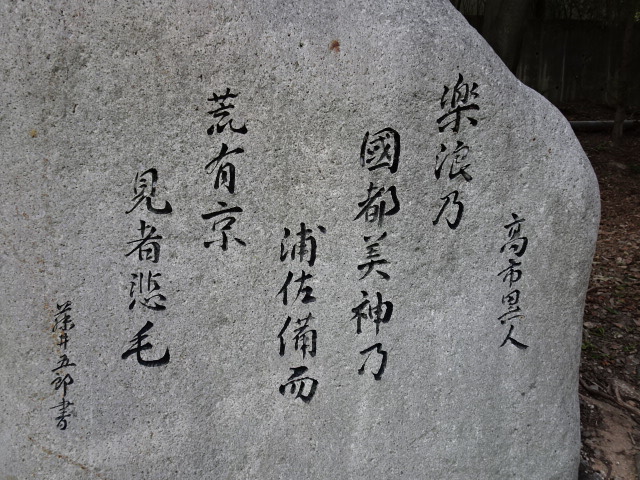 高市黒人
楽浪乃
國都美神乃
浦佐備而
荒有京
見者悲毛
藤井五郎書